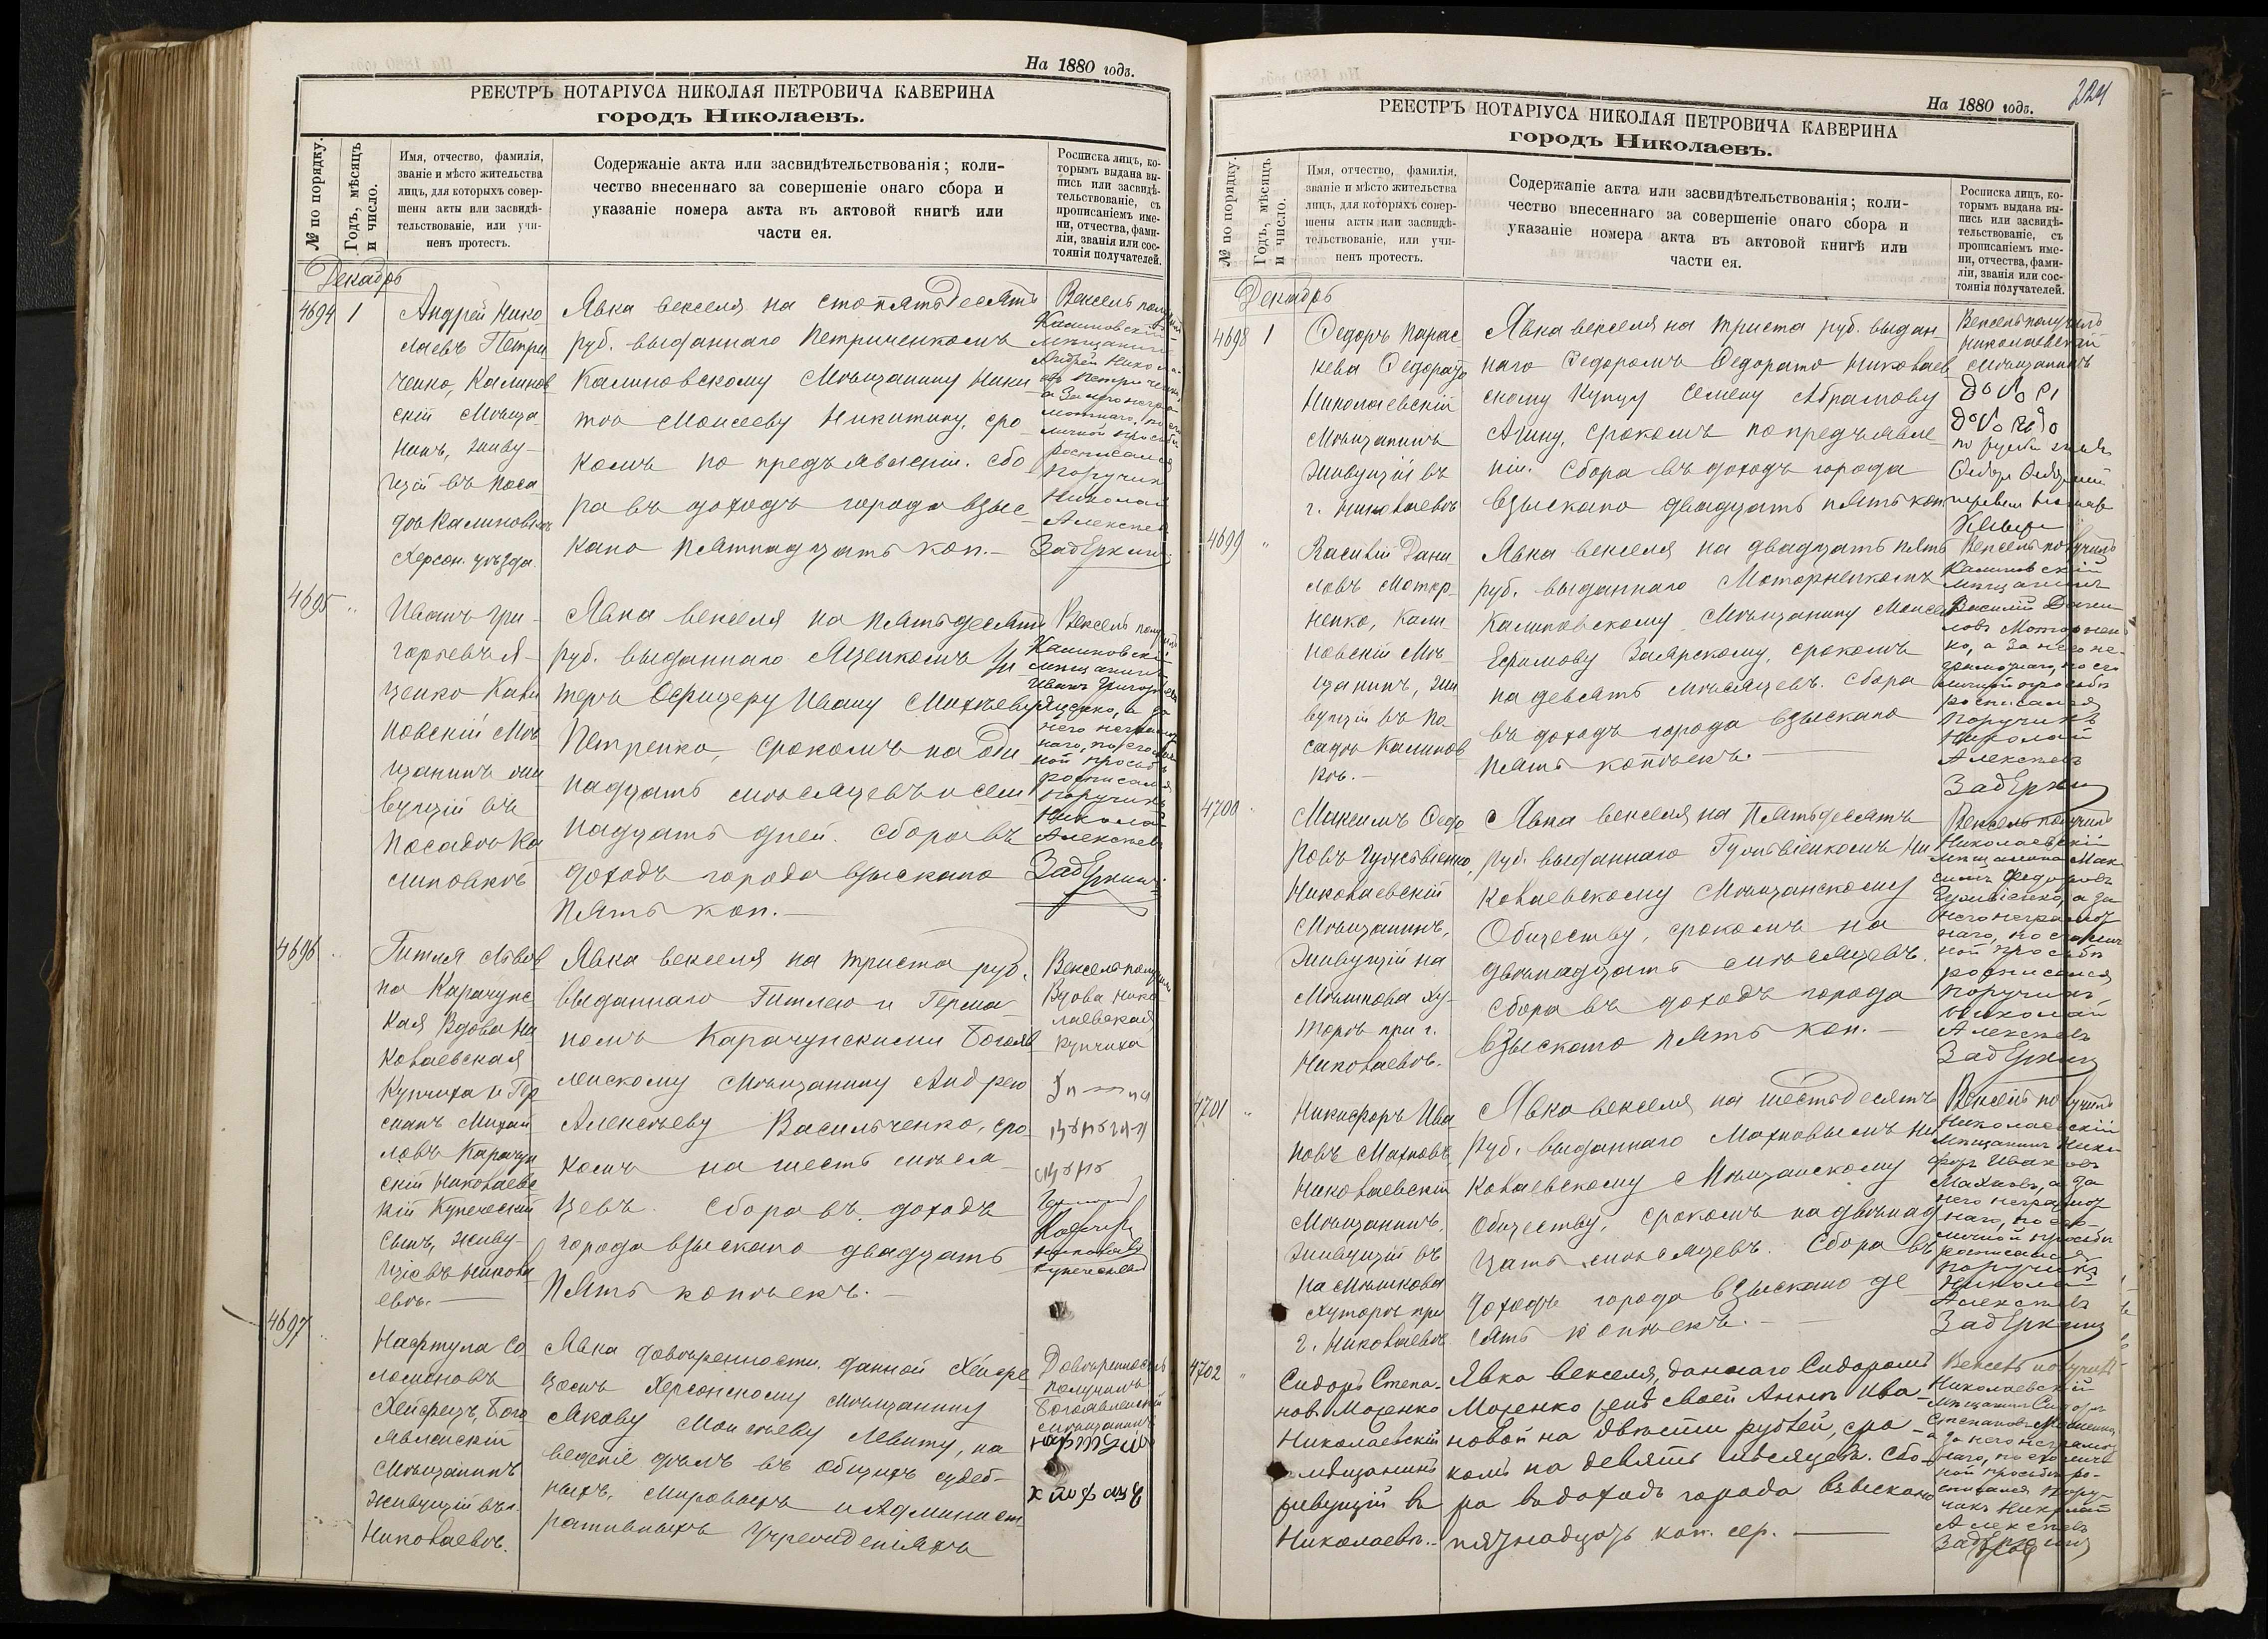 На 1880 годъ.
РЕЕСТРЪ НОТАРІУСА НИКОЛАЯ ПЕТРОВИЧА КАВЕРИНА
городъ Николаевъ.
№ по порядку.
Годъ, мѣсяцъ
и число.
Имя, отчество, фамилія,
званіе и мѣсто жительства
лицъ, для которыхъ совер-
шены акты или засвидѣ-
тельствованіе, или учи-
ненъ протестъ.
Содержаніе акта или засвидѣтельствованія; коли-
чество внесеннаго за совершеніе онаго сбора и
указаніе номера акта въ актовой книгѣ или
части ея.
Росписка лицъ, ко-
торымъ выдана вы-
пись или засвидѣ-
тельствованіе, съ
прописаніемъ име-
ни, отчества, фами-
ліи, званія или сос-
тоянія получателей.
Декабрь
4694
1
Андрей Нико
лаевъ Петри
ченко, Калинов
скій Мѣща
нинъ, живу-
щій въ поса
дѣ Калиновкѣ
Херсон. уѣзда.
Явка векселя на сто пятьдесятъ
руб. выданнаго Петриченкомъ
Калиновскому Мѣщанину Ники
тѣ Моисееву Никитину, сро
комъ по предъявленіи. Сбо
ра въ доходъ города взыс
кано пятнадцать коп.—
Вексель получилъ
Калиновскій
мѣщанинъ
Андрей Никола
евъ Петриченко
а за него негра
мотнаго, по его
личной просьбѣ
росписался
Поручикъ
Николай
Алексѣевъ
Задеркинъ
4695
"
Иванъ Гри-
горьевъ Я-
ценко Кали
новскій Мѣ
щанинъ жи
вущій въ
посадѣ Ка
линовкѣ
Явка векселя на пятьдесятъ
руб. выданнаго Яценкомъ Ун
теръ Офицеру Ивану Михѣеву
Петренко, срокомъ на оди
надцать мѣсяцевъ и сем
надцать дней. Сбора въ
доходъ города взыскано
пять коп.—
Вексель получилъ
Калиновскій
мѣщанинъ
Иванъ Григорьевъ
Яценко, а за
него неграмот
наго, по его лич
ной просьбѣ
росписался
Поручикъ
Николай
Алексѣевъ
Задеркинъ
4696
"
Гитля Львов
на Карачунс
кая Вдова Ни
колаевская
Купчиха и Гер
манъ Михай
ловъ Карачун
скій Николаевс
кій Купеческій
сынъ, живу-
щіе въ Никола
евѣ.—
Явка векселя на триста руб.
выданнаго Гитлею и Герма
номъ Карачунскими Богояв
ленскому Мѣщанину Андрею
Алексѣеву Васильченко, сро
комъ на шесть мѣся
цевъ. Сбора въ доходъ
города взыскано двадцать
пять копѣекъ.—
Вексель получили
Вдова Нико
лаевская
купчиха
4697
"
Нафтула Со
ломоновъ
Хейфецъ, Бого
явленскій
Мѣщанинъ
живущій въ г.
Николаевѣ.
Явка довѣренности, данной Хейфе
цомъ Херсонскому мѣщанину
Якову Моисѣеву Левиту, на
веденіе дѣлъ въ Общихъ судеб-
ныхъ, Мировыхъ и Админист-
ративныхъ Учрежденіяхъ
Довѣренность
получилъ
Богоявленскій
мѣщанинъ
На 1880 годъ.
224
РЕЕСТРЪ НОТАРІУСА НИКОЛАЯ ПЕТРОВИЧА КАВЕРИНА
городъ Николаевъ.
№ по порядку.
Годъ, мѣсяцъ
и число.
Имя, отчество, фамилія,
званіе и мѣсто жительства
лицъ, для которыхъ совер-
шены акты или засвидѣ-
тельствованіе, или учи-
ненъ протестъ.
Содержаніе акта или засвидѣтельствованія; коли-
чество внесеннаго за совершеніе онаго сбора и
указаніе номера акта въ актовой книгѣ или
части ея.
Росписка лицъ, ко-
торымъ выдана вы-
пись или засвидѣ-
тельствованіе, съ
прописаніемъ име-
ни, отчества, фами-
ліи, званія или сос-
тоянія получателей.
Декабрь
4698
1
Федоръ Парас
кева Федорато
Николаевскій
Мѣщанинъ
живущій въ
г. Николаевѣ
Явка векселя на триста руб. выдан
наго Федоромъ Федорато Николаев
скому Купцу Семену Абрамову
Агину, срокомъ по предъявле
ніи. Сбора въ доходъ города
взыскано двадцать пять коп
Вексель получилъ
Николаевскій
Мѣщанинъ
4699
"
Василій Дани
ловъ Мотор
ненко, Кали
новскій Мѣ
щанинъ, жи
вущій въ по
садѣ Калинов
кѣ.—
Явка векселя на двадцать пять
руб. выданнаго Моторненкомъ
Калиновскому Мѣщанину Моисею
Ефимову Заярскому, срокомъ
на девять мѣсяцевъ. Сбора
въ доходъ города взыскано
пять копѣекъ.—
Вексель получилъ
Калиновскій
мѣщанинъ
Василій Дани
ловъ Моторнен
ко, а за него не-
грамотнаго, по его
личной просьбѣ
росписался
Поручикъ
Николай
Алексѣевъ
Задеркинъ
4700
"
Максимъ Федо
ровъ
Николаевскій
Мѣщанинъ,
живущій на
Мѣшкова ху-
торѣ при г.
Николаевѣ.
Явка векселя на пятьдесятъ
руб. выданнаго
Ни
колаевскому Мѣщанскому
Обществу, срокомъ на
двѣнадцать мѣсяцевъ.
Сбора въ доходъ города
взыскано пять коп.—
Вексель получилъ
Николаевскій
мѣщанинъ Мак
симъ Федоровъ
а за
него неграмот
наго, по его лич
ной просьбѣ
росписался
Поручикъ
Николай
Алексѣевъ
Задеркинъ
4701
"
Никифоръ Ива
новъ Махновъ,
Николаевскій
Мѣщанинъ,
живущій въ
на Мѣшкова
хуторѣ при
г. Николаевѣ
Явка векселя на шестьдесятъ
руб. выданнаго Махновымъ Ни
колаевскому Мѣщанскому
Обществу, срокомъ на двѣнад
цать мѣсяцевъ. Сбора въ
доходъ города взыскано де
сять копѣекъ.—
Вексель получилъ
Николаевскій
Мѣщанинъ Ники
форъ Ивановъ
Махновъ, а за
него неграмот
наго, по его
личной просьбѣ
росписался
Поручикъ
Николай
Алексѣевъ
Задеркинъ
4702
"
Сидоръ Степа-
новъ Мозенко
Николаевскій
мѣщанинъ
живущій въ
Николаевѣ.
Явка векселя, даннаго Сидоромъ
Мозенко женѣ своей Аннѣ Ива-
новой на двѣсти рублей, сро-
комъ на девять мѣсяцевъ. Сбо-
ра въ доходъ города взыскано
пятнадцать коп. сер.—
Вексель получилъ
Николаевскій
мѣщанинъ Сидоръ
Степановъ Мозенко
а за него неграмот
наго, по его лич
ной просьбѣ ро-
списался Пору-
чикъ Николай
Алексѣевъ
Задеркинъ